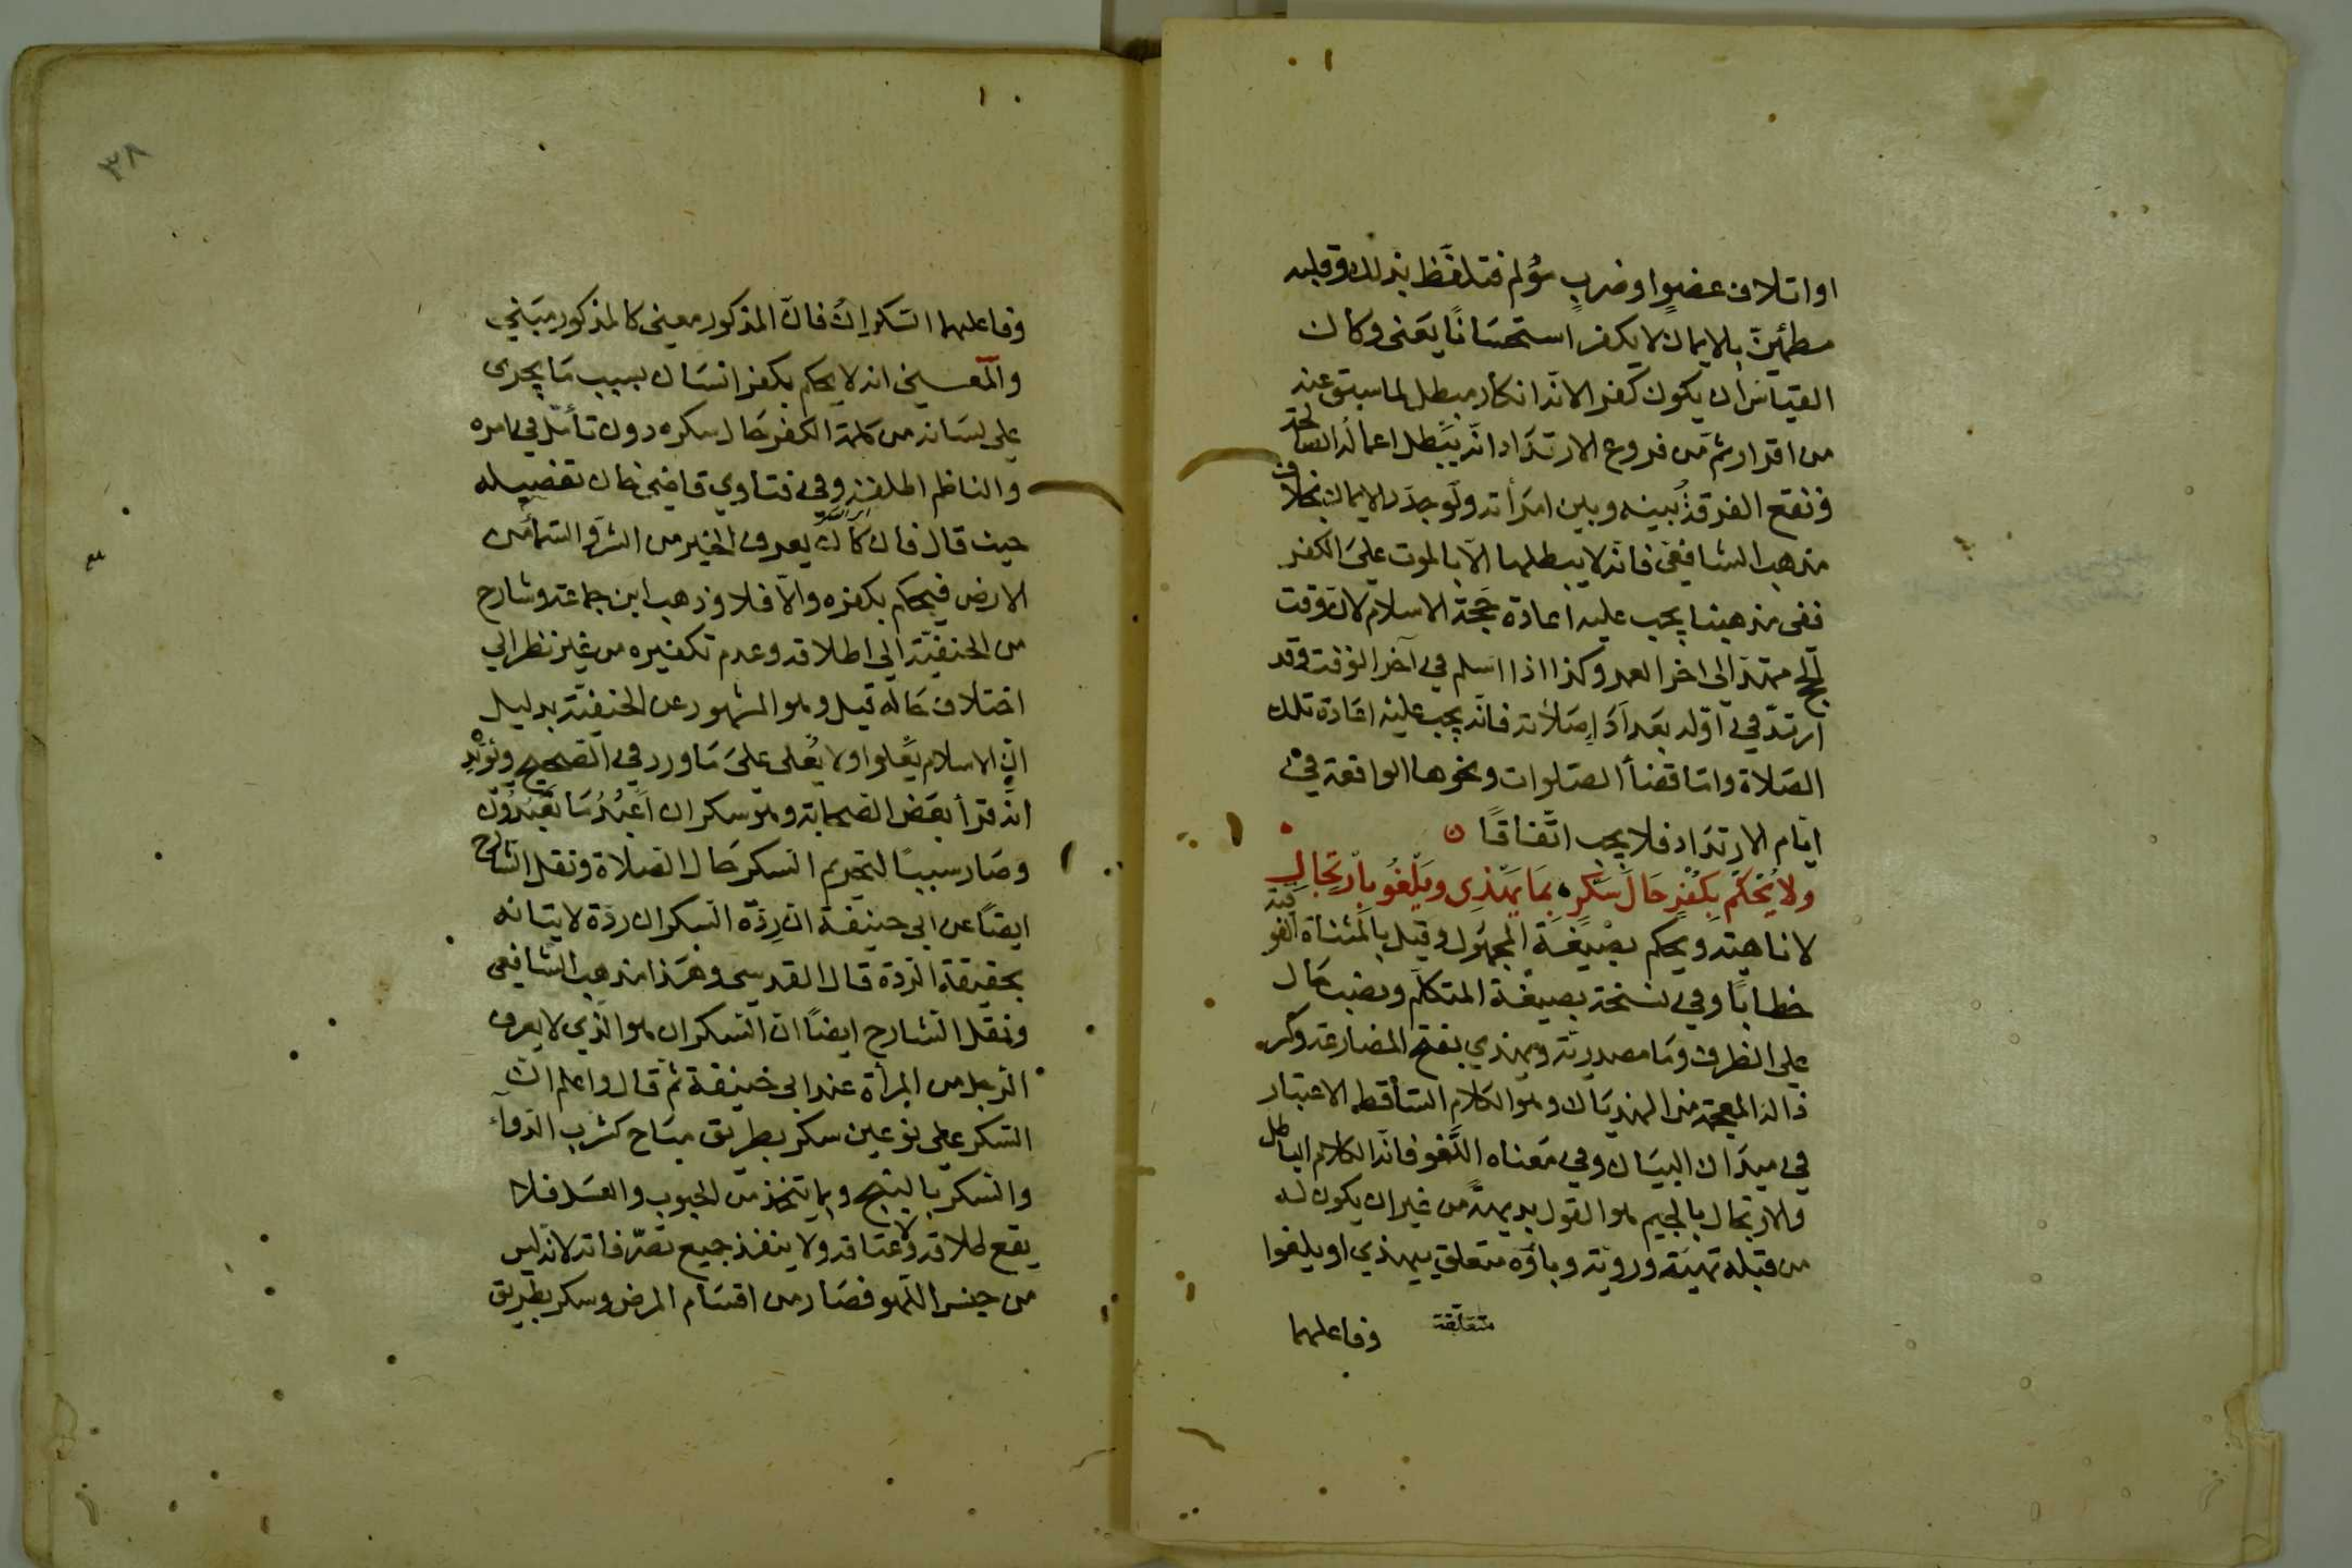 او اتلاف عضوٍ او ضربٍ مؤلم فتلفّظ بذلك وقلبه
مطمئنّ بالايمان لا يكفر استحسَانًا يعَنى وكان
القيَاس ان يكون كفر الانّه انكار مبطل لما سبق عنه
من اقرار ثم من فروع الارتدَاد انّه يبَطل اعمالُه الصالحة
وتقع الفرقةُ بينه وبين امرَأته ولو جدّد الايمان بخلاف
مذهب الشافعى فانّه لا يبطلها الّا بالموت علىَ الكفر
ففى مذهبنا يجب عليه اعادة حَجّة الاسلام لان وقت
الحج ممتدّ الى اخر العمر وكذا اذا اسلم في آخر الوقت وقد
ارتدّ في اوّله بعَد ادَاء صلَاته فانه يجب عليْه اعَادة تلك
الصَلاة وامّا قضأ الصلوات ونحوها الواقعة في
ايّام الارتدَاد فلا يجب اتّفاقًا ن
ولا يُحكَم بكفْرٍ حَالَ سَكْرٍ ۰ بمَا يَهْذِى ويَلْغُو بِاْرتِجَالِ
لا ناهية ويحكم بصْيغَة المجهُول وقيل بالمثناة الفوقية
خطابًا وفي نسخة بصيغة المتكلّم ونصب حَال
على الظرف ومَا مصدريّة ويهذي بفتح المضارعة وكسر
ذال المعجمة من الهذيَان وهو الكلام السَاقط الاعتبار
في ميدَان البيَان وفي معناه اللَغو فانّه الكلام الباطل
والارتجال بالجيم هو القول بديهةً من غير ان يكون له
من قبله تهيئة ورويّة وباؤه متعلق بيهذي او يلغوا
متعلقة وفاعلهما
٣٨
وفاعلهما السَكرانُ فانّ المذكور معنى كالمذكور مبَنى
والمَعـنى انه لا يحكم بكفر انسَان بسبب مَا يجرى
على لسَانه من كلمة الكفر حَال سكره دون تأمّل في امره
والناظم اطلقه وفي فتاوي قاضى خان تفصيله
حيث قال فان كان يعرف الخير من الشرّ والسّمأ من
الارض فيحكم بكفره والّا فلا وذهب ابن جماعة وشارح
من الحنفيّة الى اطلاقه وعدم تكفيره من غير نظر الي
اختلاف حَاله قيل وهو المشهور عن الحنفيّة بدليل
انّ الاسلام يَعْلوا ولا يُعلى علىَ مَا ورد في الصحيح ويؤيّده
انّه قرأ بعَض الصَحابة وهو سكران اَعْبُدُ مَا تَعْبُدُونَ
وصَار سببًا لتحريم السكر حَال الصَلاة ونقل الشارح
ايضًا عن ابي حنيفة ان رِدّة السَكران ردّة لايتانه
بحقيقة الردة قال القدسي وهَذا مذهب الشافعى
ونقل الشارح ايضًا انّ السَكران هو الّذي لا يعرف
الرّجل من المرأة عند ابي حنيفة ثم قال واعلم انّ
السَكر على نوعين سكر بطريق مبَاح كشرب الدّوآء
والسَكر بالبنج وبما يتّخذ من الحبوب والعسَل فلا
يقع طلاقه ولا عتاقه ولا ينفذ جميع تصرّفاته لانه ليس
من جنس اللّهو فصَار من اقسَام المرض وسكر بطريق